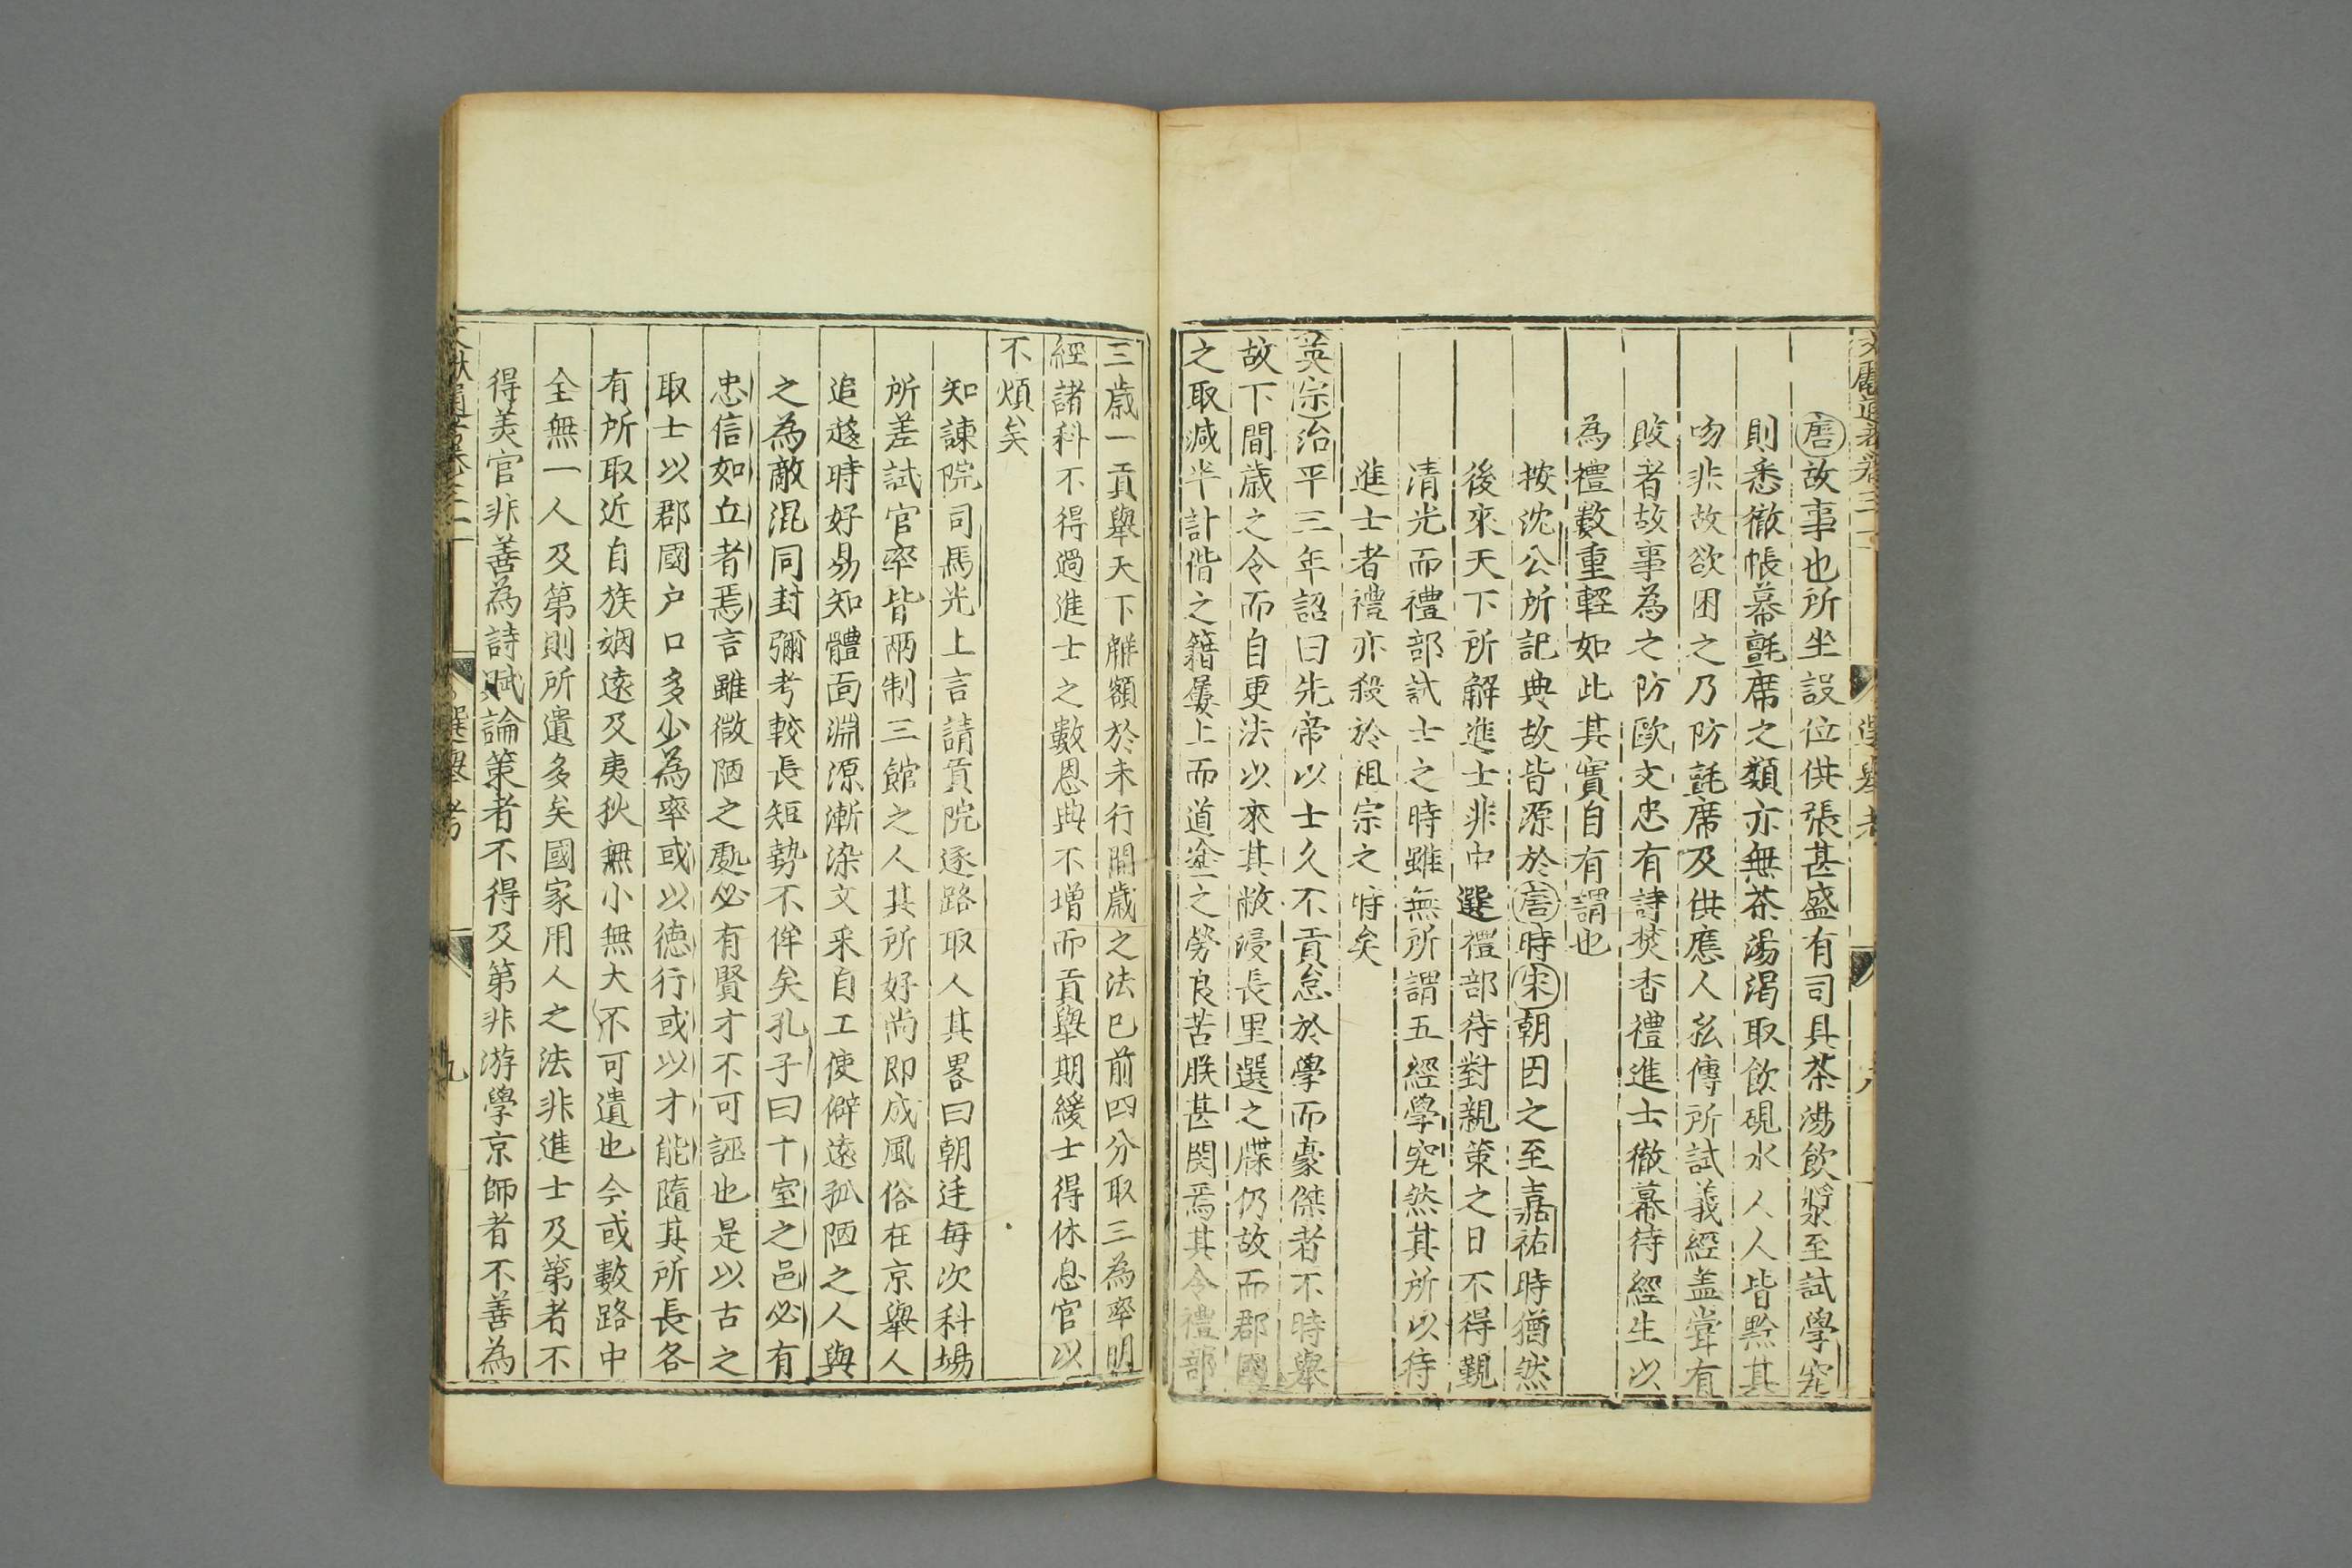 唐故事也所坐設位供張甚盛有司具茶湯飲漿至試學究
則悉徹帳幕氈席之類亦無茶湯渴取飲硯水人人皆黔其
吻非故欲困之乃防氈席及供應人私傳所試義經盖甞有
敗者故事為之防歐文忠有詩焚香禮進士徹幕待經生以
為禮數重輕如此其實自有謂也
按沈公所記典故皆源於唐時宋朝因之至嘉祐時猶然
後來天下所解進士非中選禮部待對親策之日不得覲
清光而禮部試士之時雖無所謂五經學究然其所以待
進士者禮亦殺於祖宗之時矣
英宗治平三年詔曰先帝以士久不貢怠於學而豪傑者不時舉
故下間歲之令而自更法以來其敝浸長里選之牒仍故而郡國
之取減半計偕之籍屢上而道塗之勞良苦朕甚閔焉其令禮部
三歲一貢舉天下觧額於未行間歲之法已前四分取三為率明
經諸科不得過進士之數恩典不增而貢舉期緩士得休息官以
不煩矣
知諫院司馬光上言請貢院逐路取人其畧曰朝廷每次科場
所差試官率皆兩制三館之人其所好尚即成風俗在京舉人
追趨時好易知體面淵源漸染文采自工使僻遠孤陋之人與
之為敵混同封彌考較長短勢不侔矣孔子曰十室之邑必有
忠信如丘者焉言雖微陋之處必有賢才不可誣也是以古之
取士以郡國户口多少為率或以德行或以才能隨其所長各
有所取近自族姻遠及夷狄無小無大不可遺也今或數路中
全無一人及第則所遺多矣國家用人之法非進士及第者不
得美官非善為詩賦論策者不得及第非游學京師者不善為
選舉考
九